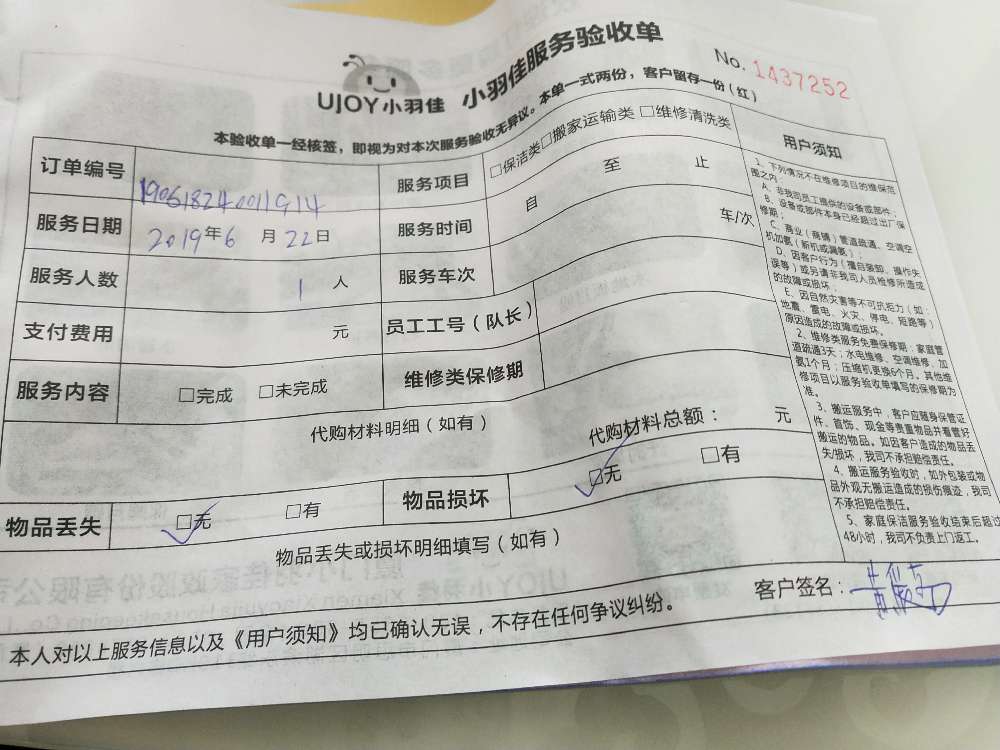 UJOY小羽佳 小羽佳服务验收单
No. 1437252
本验收单一经核签，即视为对本次服务验收无异议。本单一式两份，客户留存一份（红）
订单编号 190618240011914 服务项目 □保洁类□搬家运输类 □维修清洗类
服务日期 2019年6月22日 服务时间 自 至 止
服务人数 1 人 服务车次 车/次
支付费用 元 员工工号（队长）
服务内容 □完成 □未完成 维修类保修期
代购材料明细（如有） 代购材料总额： 元
物品丢失 □无 □有 物品损坏 □无 □有
物品丢失或损坏明细填写（如有）
用户须知
1、下列情况不在维修项目的维保范
围之内：
A、非我司员工提供的设备或部件；
B、设备或部件本身已经超过出厂保
修期；
C、商业（商铺）管道疏通、空调空
机加氨（新机或漏氨）；
D、因客户行为（擅自装卸、操作失
误等）或另请非我司人员检修所造成
的故障或损坏；
E、因自然灾害等不可抗拒力（如：
地震、雷电、火灾、停电、短路等）
原因造成的故障或损坏。
2、维修类服务免费保修期：家庭管
道疏通3天；水电维修、空调维修、加
氨1个月；压缩机更换6个月。其他维
修项目以服务验收单填写的保修期为
准。
3、搬运服务中，客户应随身保管证
件、首饰、现金等贵重物品并看管好
搬运的物品。如因客户造成的物品丢
失/损坏，我司不承担赔偿责任。
4、搬运服务验收时，如外包装或物
品外观无搬运造成的损伤痕迹，我司
不承担赔偿责任。
5、家庭保洁服务验收结束后超过
48小时，我司不负责上门返工。
客户签名：
本人对以上服务信息以及《用户须知》均已确认无误，不存在任何争议纠纷。